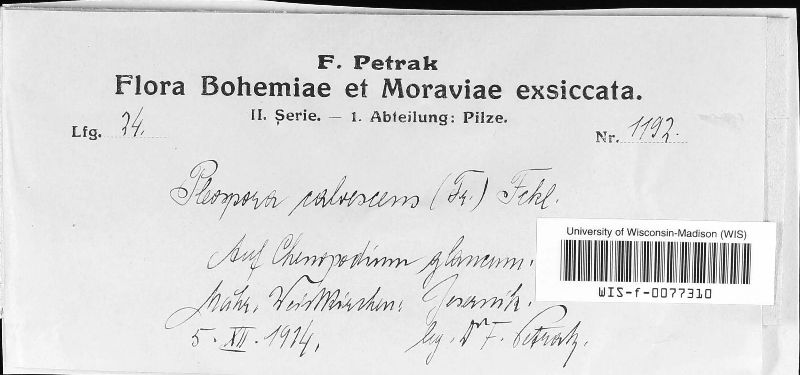 F. Petrak
Flora Bohemiae et Moraviae exsiccata.
II. Serie. — 1. Abteilung: Pilze.
Lfg. 24.
Nr. 1192.
Pleospora calvescens (Fr.) Fckl.
Auf Chenopodium glaucum.
Mähr. Weisskirchen: Jesernik.
5. XII. 1914.
leg. Dr F. Petrak.
University of Wisconsin-Madison (WIS)
WIS-f-0077310